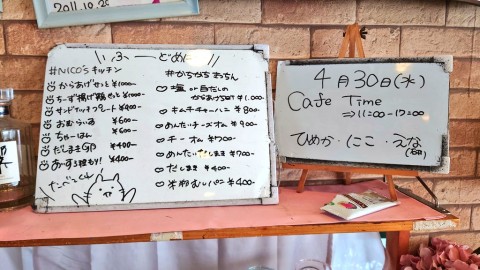 2011.10.29
ふーどめにゅー
#NICO'Sキッチン
からあげセット ¥1000
ちーず揚げ鶏セット ¥1000
サンドイッチプレート ¥900
おむらいす ¥600
ちゃーはん ¥600
だしまき ¥400
たべてくれ
#かちがちきっちん
塩 or 旨だしのからあげSET ¥1.000
キムチチャーハン ¥800
めんたいチーズオムン ¥900
チーオムン ¥700
めんたいだしまき ¥700
だしまき ¥400
¥400
4月30日(水)
Cafe Time
⇒11:00-17:00
ひめか・にこ・えな